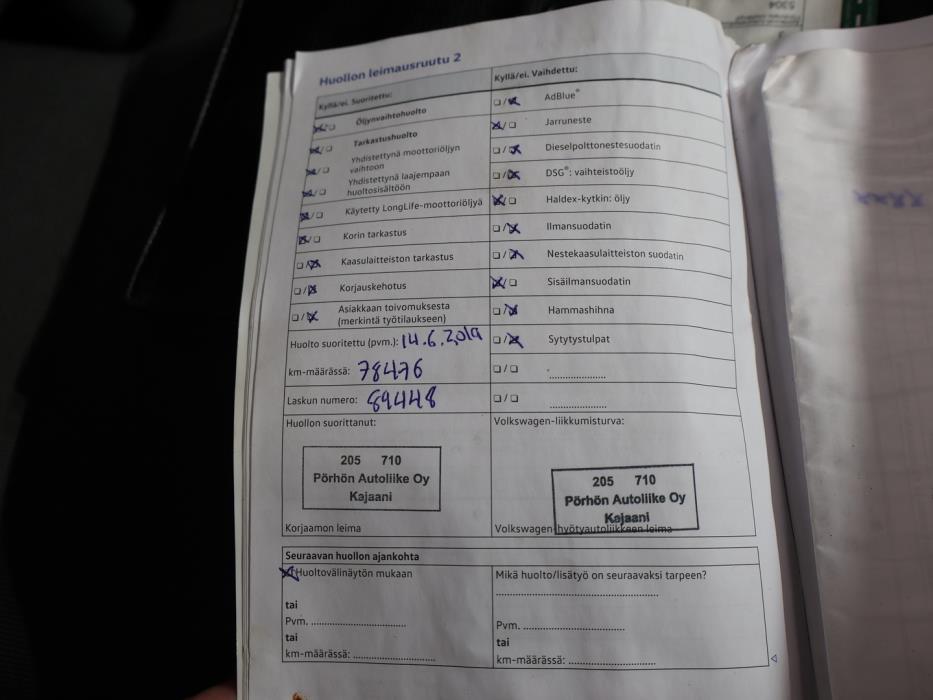 5304
Huollon leimausruutu 2
Kyllä/ei. Suoritettu:
Öljynvaihtohuolto
Tarkastushuolto
Yhdistettynä moottoriöljyn
vaihtoon
Yhdistettynä laajempaan
huoltosisältöön
Käytetty LongLife-moottoriöljyä
Korin tarkastus
Kaasulaitteiston tarkastus
Korjauskehotus
Asiakkaan toivomuksesta
(merkintä työtilaukseen)
Huolto suoritettu (pvm.): 14.6.2019
km-määrässä: 78476
Laskun numero: 89448
Kyllä/ei. Vaihdettu:
AdBlue®
Jarruneste
Dieselpolttonestesuodatin
DSG®: vaihteistoöljy
Haldex-kytkin: öljy
Ilmansuodatin
Nestekaasulaitteiston suodatin
Sisäilmansuodatin
Hammashihna
Sytytystulpat
Huollon suorittanut:
205 710
Pörhön Autoliike Oy
Kajaani
Korjaamon leima
Volkswagen-liikkumisturva:
205 710
Pörhön Autoliike Oy
Kajaani
Volkswagen-hyötyautoliikkeen leima
Seuraavan huollon ajankohta
Huoltovälinäytön mukaan
tai
Pvm. ........................
tai
km-määrässä: .....................
Mikä huolto/lisätyö on seuraavaksi tarpeen?
..........................................
Pvm. ..........................
tai
km-määrässä: .......................